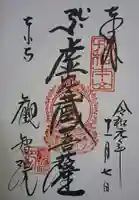 奉拝
令和元年
十一月七日
虚空蔵菩薩
東寺
觀智院